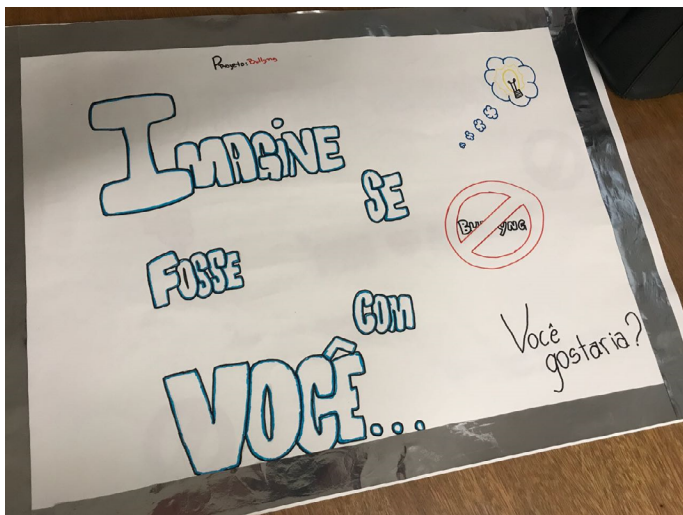 Projeto: Bullyng
IMAGINE
SE
FOSSE
COM
VOCÊ...
BULLYNG
Você
gostaria?